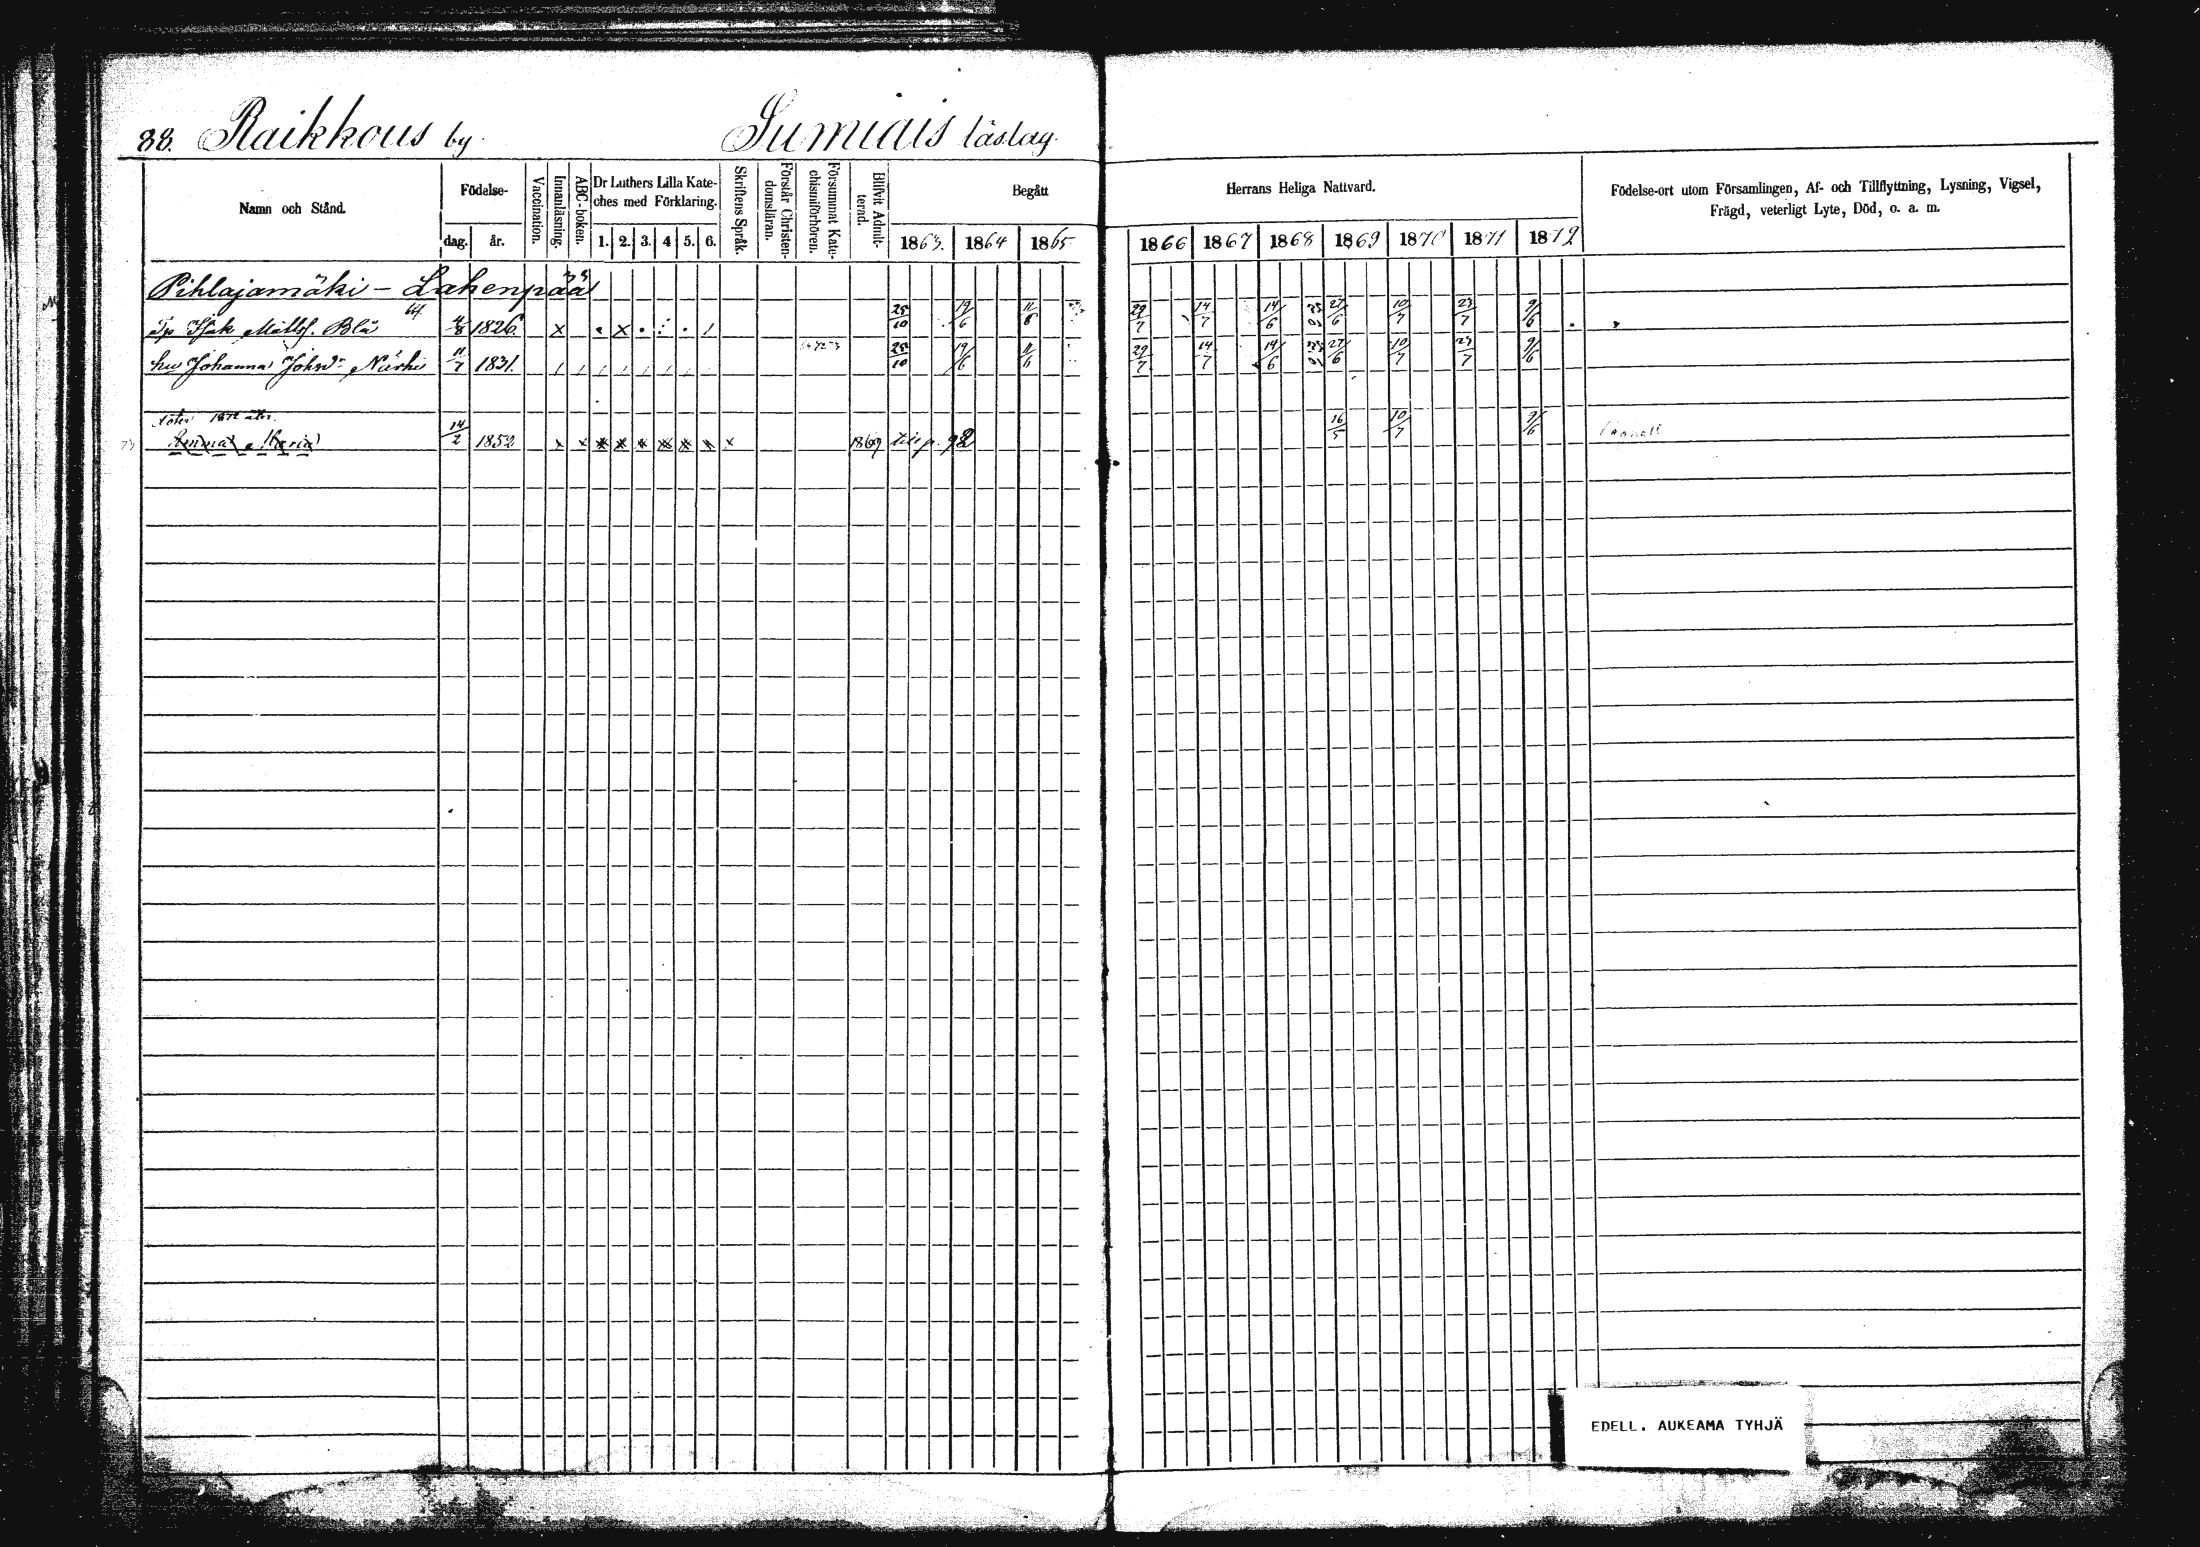 88. Raikkous by. Sumiais läslag.
Namn och Stånd.
Födelse-
dag. år.
Vaccination.
Innanläsning.
ABC-boken.
Dr Luthers Lilla Kate-
ches med Förklaring.
1. 2. 3. 4 5. 6.
Skriftens Språk.
Förstår Christen-
domsläran.
Försummat Kate-
chismiförhören.
Blifvit Admit-
terad.
Begått Herrans Heliga Nattvard.
1863. 1864 1865 1866 1867 1868 1869 1870 1871 1872
Födelse-ort utom Församlingen, Af- och Tillflyttning, Lysning, Vigsel,
Frägd, veterligt Lyte, Död, o. a. m.
Pihlajamäki – Lahenpää
64
Isak Mattss. Blå 4/8 1826. x . x . : . / 25/10 19/6 11/6 29/7 14/7 14/6 27/6 10/7 23/7 9/6
hu Johanna Johsdr Närhi 11/7 1831. / / / / / / / / 25/10 19/6 11/6 29/7 14/7 14/6 27/6 10/7 23/7 9/6
Maria 14/2 1852 x x x x x x x x x 1869 till p. 92 16/5 10/7 9/6
EDELL. AUKEAMA TYHJÄ